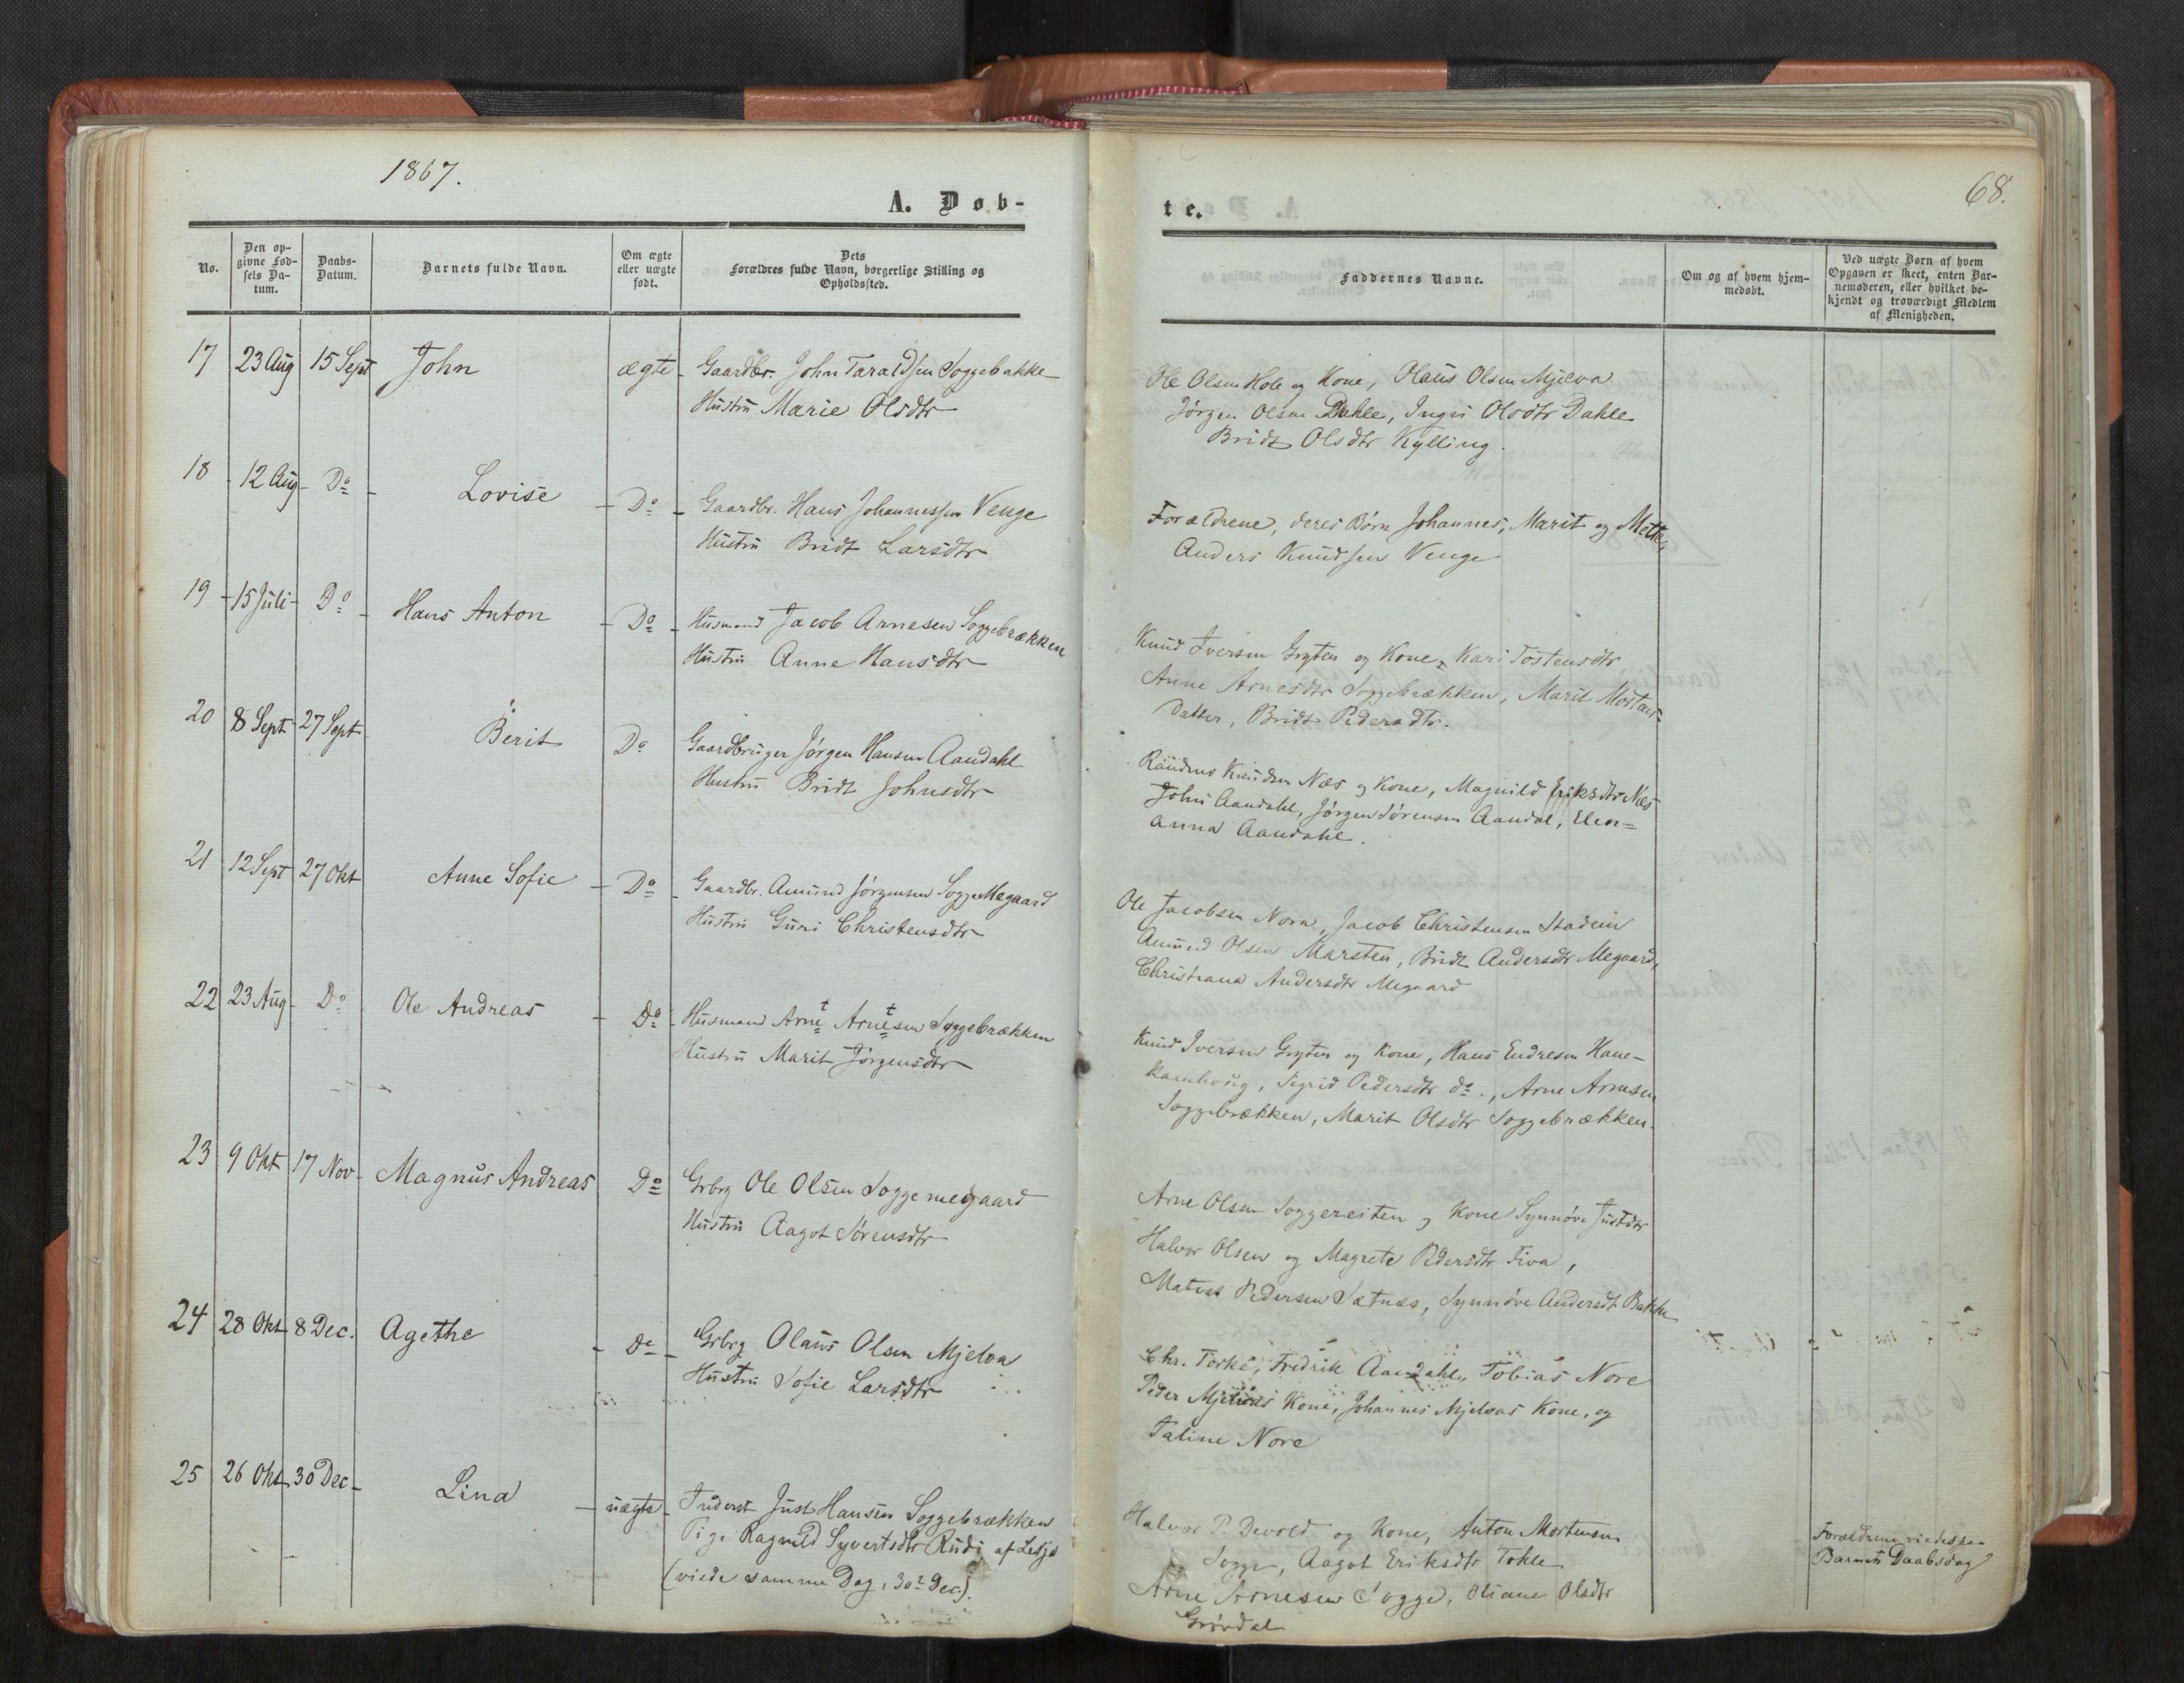 1867.
A. Døb-
No.
Den op-
givne Fød-
sels Da-
tum.
Daabs-
Datum.
Barnets fulde Navn.
Om ægte
eller uægte
født.
Dets
Forældres fulde Navn, borgerlige Stilling og
Opholdssted.
17 23 Aug 15 Sept John ægte Gaardbr. John Taraldsen Soggebakke
Hustru Marie Olsdtr
18 12 Aug Do Lovise Do Gaardbr. Hans Johannessen Venge
Hustru Bridt Larsdtr
19 15 Juli Do Hans Anton Do Husmand Jacob Arnesen Soggebrækken
Hustru Anne Hansdtr
20 8 Sept 27 Sept Berit Do Gaardbruger Jørgen Hansen Aandahl
Hustru Bridt Johnsdtr
21 12 Sept 27 Okt Anne Sofie Do Gaardbr. Amund Jørgensen SoggeMegaard
Hustru Guri Christensdtr
22 23 Aug Do Ole Andreas Do Husmand Arne Arnesen Soggebrækken
Hustru Marit Jørgensdtr
23 9 Okt 17 Nov Magnus Andreas Do Grbrg Ole Olsen Soggemegaard
Hustru Aagot Sørensdtr
24 28 Okt 8 Dec. Agethe Do Grbrg Olaus Olsen Mjelva
Hustru Sofie Larsdtr
25 26 Okt 30 Dec Lina uægte Inderst Just Hansen Soggebrækken
Pige Ragnild Syvertsdtr Rudi af Lesje
(viede samme Dag, 30 Dec).
68.
te.
Faddernes Navne.
Om og af hvem hjem-
medøbt.
Ved uægte Børn af hvem
Opgaven er skeet, enten Bar-
nemoderen, eller hvilket be-
kjendt og troværdigt Medlem
af Menigheden.
Ole Olsen Hole og Kone, Olaus Olsen Mjelva
Jørgen Olsen Dahle, Ingri Olsdtr Dahle
Bridt Olsdtr Kylling.
Forældrene, deres Børn Johannes, Marit og Mette,
Anders Knudsen Venge
Knud Iversen Gryten og Kone, Kari Tostensdtr
Anne Arnesdtr Soggebrækken, Marit
Datter, Bridt Pedersdtr.
Knudsen Næs og Kone, Magnild Eriksdtr Næs
John Aandahl, Jørgen Sørensen Aandal, Elen=
anna Aandahl.
Ole Jacobsen Nora, Jacob Christensen Stadein
Amund Olsen Marsten, Bridt Andersdtr Megaard,
Christiana Andersdtr Megaard
Knud Iversen Gryten og Kone, Hans Endresen Hane-
kamhoug, Sigrid Pedersdtr do., Arne Arnesen
Soggebrækken, Marit Olsdtr Soggebrækken.
Arne Olsen Soggereiten og Kone Synnøve Justdtr
Halvor Olsen og Magrete Pedersdtr Fiva,
Matias Pedersen Sætnes, Synnøve Andersdt Bakke
Chr. Torke, Fredrik Aandahl, Tobias Nore
Peder Mjelvas Kone, Johannes Mjelvas Kone, og
Taline Nore
Halvor P. Devold og Kone, Anton Mortensen
Sogge, Aagot Eriksdtr Tokle
Arne Arnesen Sogge, Oliane Olsdtr
Grøvdal
Forældrene viedes paa
Barnets Daabsdag